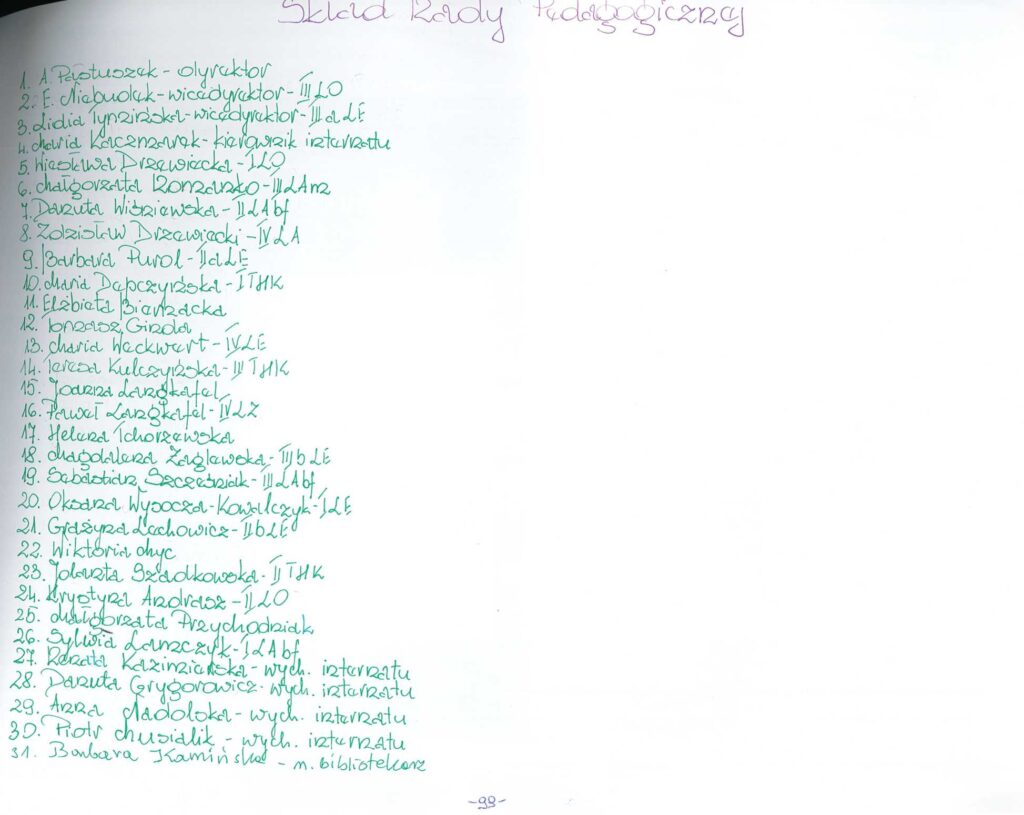 Skład Rady Pedagogicznej
1. A. Pastuszak - dyrektor
2. E. Niebudek - wicedyrektor - III LO
3. Lidia Tynzińska - wicedyrektor - III a LE
4. Maria Kaczmarek - kierownik internatu
5. Wiesława Drzewiecka - I LO
6. Małgorzata Romanko - III LAm
7. Danuta Wiśniewska - II LAbf
8. Zdzisław Drzewiecki - IV LA
9. Barbara Purol - II a LE
10. Maria Depczyńska - I THK
11. Elżbieta Biernacka
12. Tomasz Girda
13. Maria Weckwert - IV LE
14. Teresa Kulczyńska - III THK
15. Joanna Langkafel
16. Paweł Langkafel - IV LZ
17. Helena Tchorzewska
18. Magdalena Żaglewska - III b LE
19. Sebastian Szcześniak - III LAbf
20. Oksana Wysocza-Kowalczyk - I LE
21. Grażyna Lachowicz - II b LE
22. Wiktoria Myc
23. Jolanta Szadkowska - II THK
24. Krystyna Andrasz - II LO
25. Małgorzata Przychodniak
26. Sylwia Lamczyk - I LAbf
27. Renata Kazimierska - wych. internatu
28. Danuta Grygorowicz - wych. internatu
29. Anna Nadolska - wych. internatu
30. Piotr Musialik - wych. internatu
31. Barbara Kamińska - n. bibliotekarz
-99-